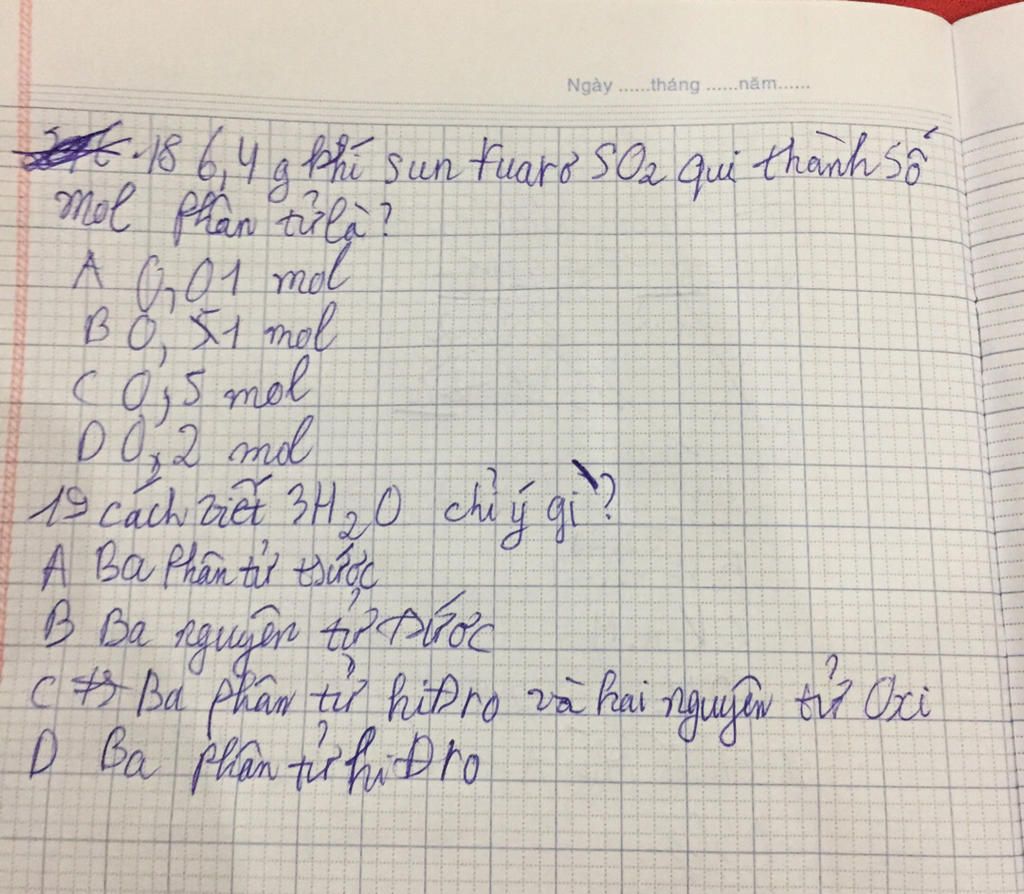 Ngày ......tháng ......năm......
18 6,4 g khí sun fuarơ SO2 qui thành số
mol phân tử là?
A 0,01 mol
B 0,51 mol
C 0,5 mol
D 0,2 mol
19 cách viết 3H2O chỉ ý gì?
A Ba phân tử nước
B Ba nguyên tử nước
C Ba phân tử hiđro và hai nguyên tử Oxi
D Ba phân tử hiđro